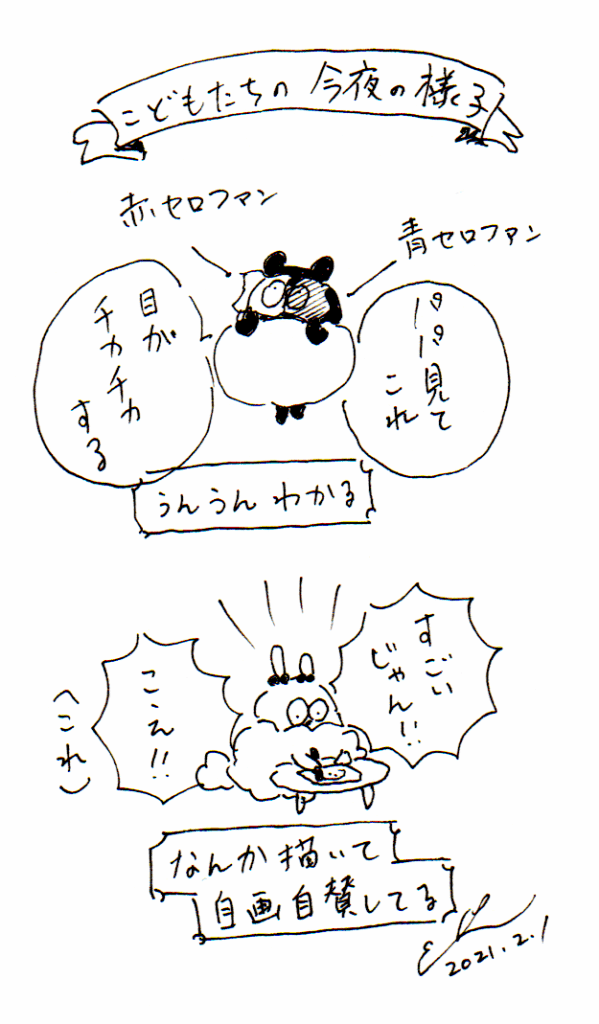 こどもたちの今夜の様子
赤セロファン
青セロファン
パパ見て
これ
目が
チカチカ
する
うんうんわかる
すごい
じゃん!!
こえ!!
(これ)
なんか描いて
自画自賛してる
2021.2.1